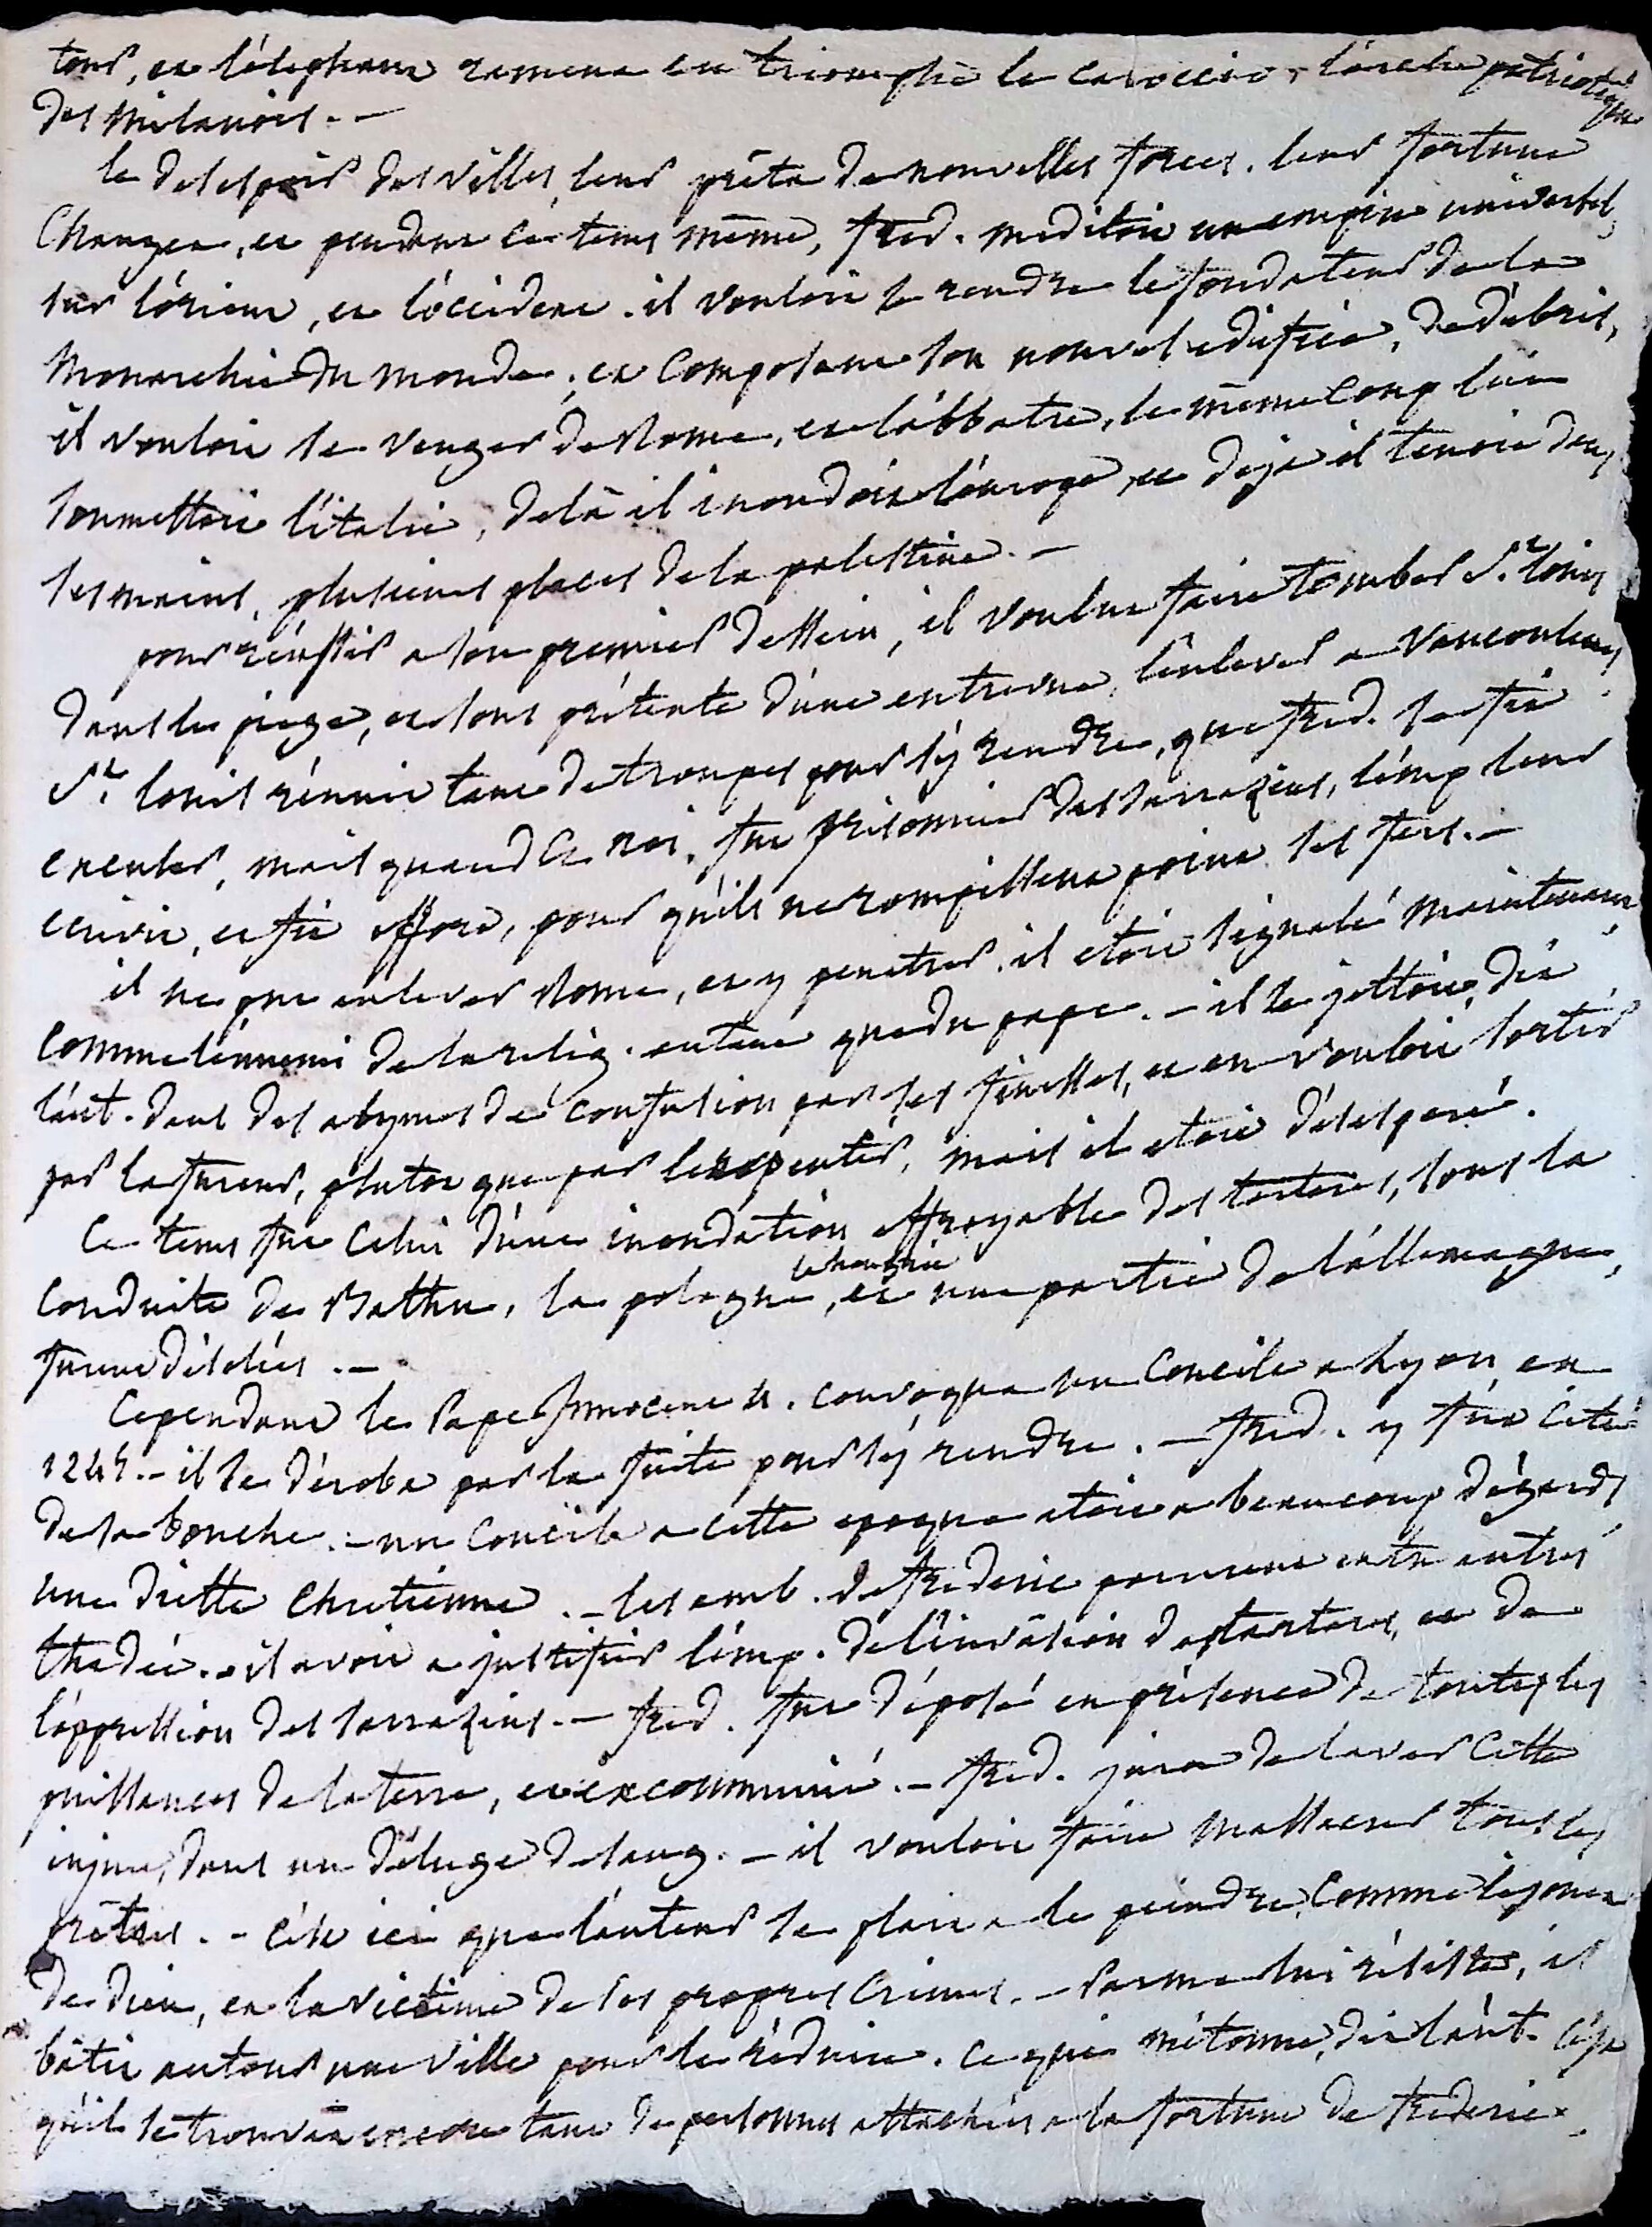 tours, et l'éléphant ramena en triomphe le caroccio, l'arche patriotique
des Milanois. –
le desespoir des villes, leur prêta de nouvelles forces. leur fortune
Changea, et pendant ce tems même, fred. meditoit un empire universel,
sur l'orient, et l'occident. il vouloit se rendre le fondateur de la
Monarchie du monde; et Composant son nouvel edifice, de débris,
il vouloit se venger de Rome, et l'abbattre, le même Coup lui
soumettoit l'italie, delà il inondoit l'europe, et deja il tenoit dans
ses mains, plusieurs places de la palestine. –
pour réussir a son premier dessein, il voulut faire tomber St. louis
dans le piege, et sous prétexte d'une entrevue, l'enlever a Vaucouleurs
St. louis réunit tant de troupes pour s'y rendre, que fred. se fit
excuser, mais quand ce roi, fut prisonnier des sarrazins, l'emp. leur
ecrivit, et fit effort, pour qu'ils ne rompissent point ses fers. –
il ne put enlever Rome, et y penetrer. il etoit signalé maintenant
comme l'ennemi de la relig. autant que du pape. – il se jettoit, dit
l'aut. dans des abymes de confusion par ses finesses, et en vouloit sortir
par la fureur, plutot que par le repentir, mais il etoit désesperé.
Ce tems fut Celui d'une inondation effroyable des tartares, sous la
Conduite de Bathu, la pologne, la hongrie et une partie de l'allemagne,
furent désolées. –
Cependant le Pape Innocent 4. convoqua un Concile a Lyon, en
1245. – il se déroba par la fuite pour s'y rendre. – fred. y fut Cité
de sa bouche. – un Concile a cette epoque etoit a beaucoup d'égards
une diette Chretienne. – les amb. de frederic parurent entre autres
thadée. – il avoit a justifier l'emp. de l'invasion des tartares, et de
l'oppression des sarrazins. – fred. fut déposé en présence de toutes les
puissances de la terre, et excommunié. – fred. jura de laver Cette
injure, dans un déluge de sang. – il vouloit faire Massacrer tous les
prêtres. – c'est ici que l'auteur se plait a le peindre, Comme le jouet
de dieu, et la victime de ses propres Crimes. – Parme lui résista, il
bâtit autour une ville pour la réduire. ce qui m'étonne, dit l'aut. c'est
qu'il se trouvât encore tant de personnes attachées a la fortune de frederic.